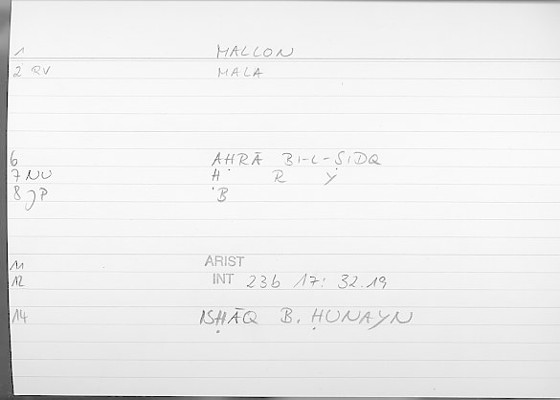 1 MALLON
2 RV MALA
6 AḤRĀ BI-L-ṢIDQ
7 NU Ḥ R Y
8 JP B
11 ARIST
12 INT 23b 17: 32.19
14 ISḤĀQ B. ḤUNAYN